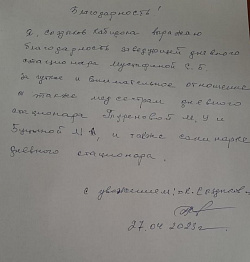 Благодарность!
Я, Созданов Кабидола выражаю
благодарность заведующей дневного
стационара Мустафиной С. Б.
За чуткое и внимательное отношение
а также медсестрам дневного
стационара М. У и
М, и также санитарке
дневного стационара.
с уважением:
27.04 2023г